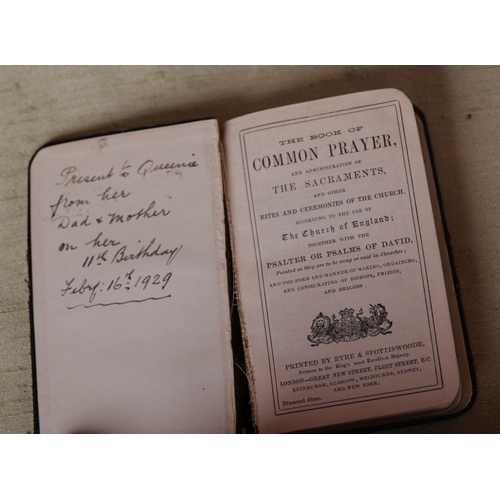 Present to Queenie
from her
Dad & Mother
on her
11th Birthday
Feby: 16th 1929
THE BOOK OF
COMMON PRAYER,
AND ADMINISTRATION OF
THE SACRAMENTS,
AND OTHER
RITES AND CEREMONIES OF THE CHURCH,
ACCORDING TO THE USE OF
The Church of England;
TOGETHER WITH THE
PSALTER OR PSALMS OF DAVID,
Pointed as they are to be sung or said in Churches;
AND THE FORM AND MANNER OF MAKING, ORDAINING,
AND CONSECRATING OF BISHOPS, PRIESTS,
AND DEACONS
PRINTED BY EYRE & SPOTTISWOODE,
Printers to the King's most Excellent Majesty.
LONDON—GREAT NEW STREET, FLEET STREET, E.C
EDINBURGH, GLASGOW, MELBOURNE, SYDNEY,
AND NEW YORK.
Diamond 48mo.